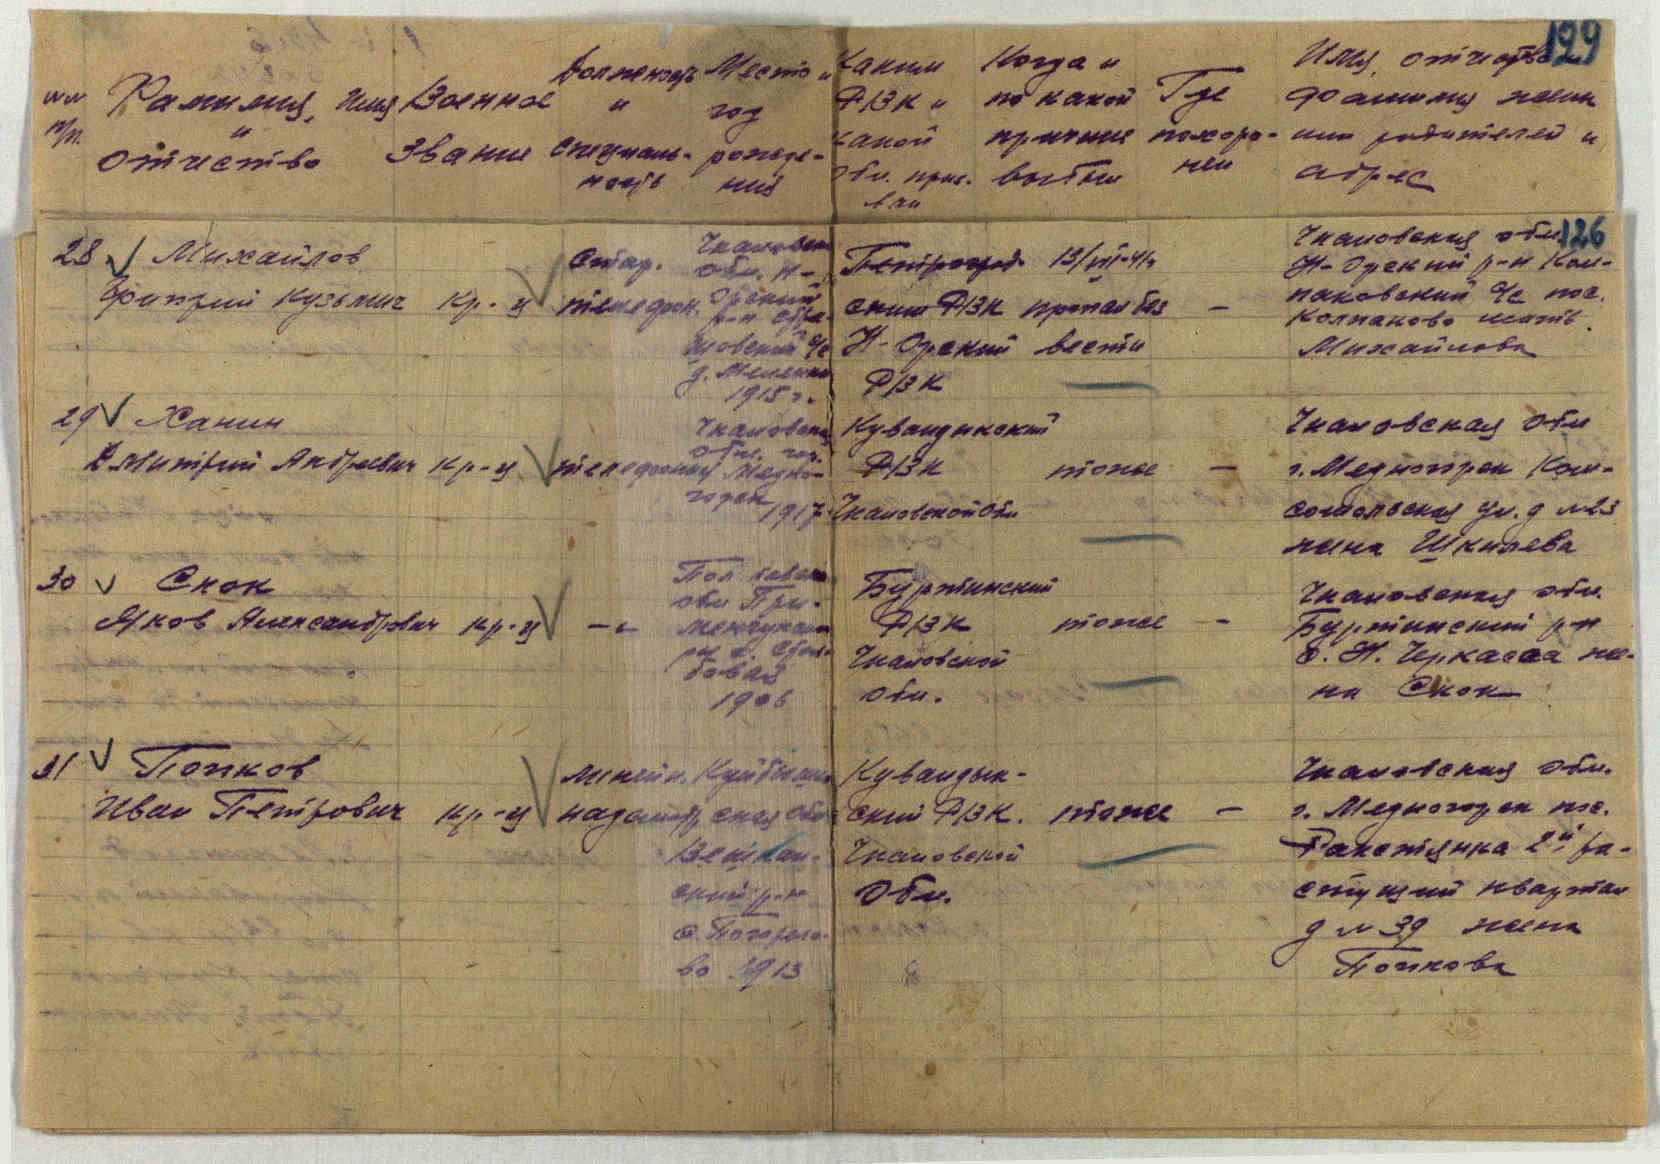 129
№№ п/п.
Фамилия, имя и отчество
Военное звание
Должность и специаль-
ность
Место и год рожде-
ния
Каким РВК и какой обл. приз-
ван
Когда и по какой причине выбыл
Где похоро-
нен
Имя, отчество и
фамилия жены
или родителей и
адрес
126
28 Михайлов
Кузьмич кр-ц
Стар.
телефон.
Чкаловская
обл. Н-
Орский
р-н
д.
1915 г.
ским РВК
Н-Орский
РВК
13/VIII-41г
пропал без
вести
—
Чкаловская обл.
Н-Орский р-н Кол-
паковский с/с пос.
Колпаково мать
Михайлова
29 Ханин
Дмитрий Андреевич кр-ц
телефонист
Чкаловская
обл. гор.
Медно-
горск
1917
Кувандыкский
РВК
Чкаловской обл
тоже
—
Чкаловская обл
г. Медногорск Ком-
сомольская ул. д №23
жена Шкилева
30 Скок
Яков Александрович кр-ц
-"-
Полтавская
обл
1906
Буртинский
РВК
Чкаловской
обл.
тоже
—
Чкаловская обл.
Буртинский р-н
с. Н. Черкассы же-
на Скок
31 Попков
Иван Петрович кр-ц
линейн.
надсмотр
Куйбышев
ская обл
ский р-н
во 1913
Кувандык-
ский РВК.
Чкаловской
обл.
тоже
—
Чкаловская обл.
г. Медногорск пос.
Ракетянка 2й ра-
стущий квартал
д № 39 жена
Попкова